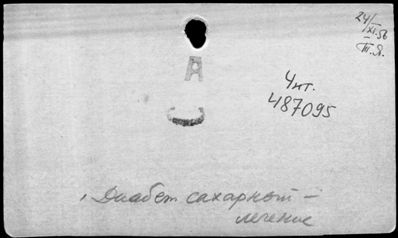 24/I
XI.56
Т.Я.
А
Чит.
487095
Диабет сахарный –
лечение